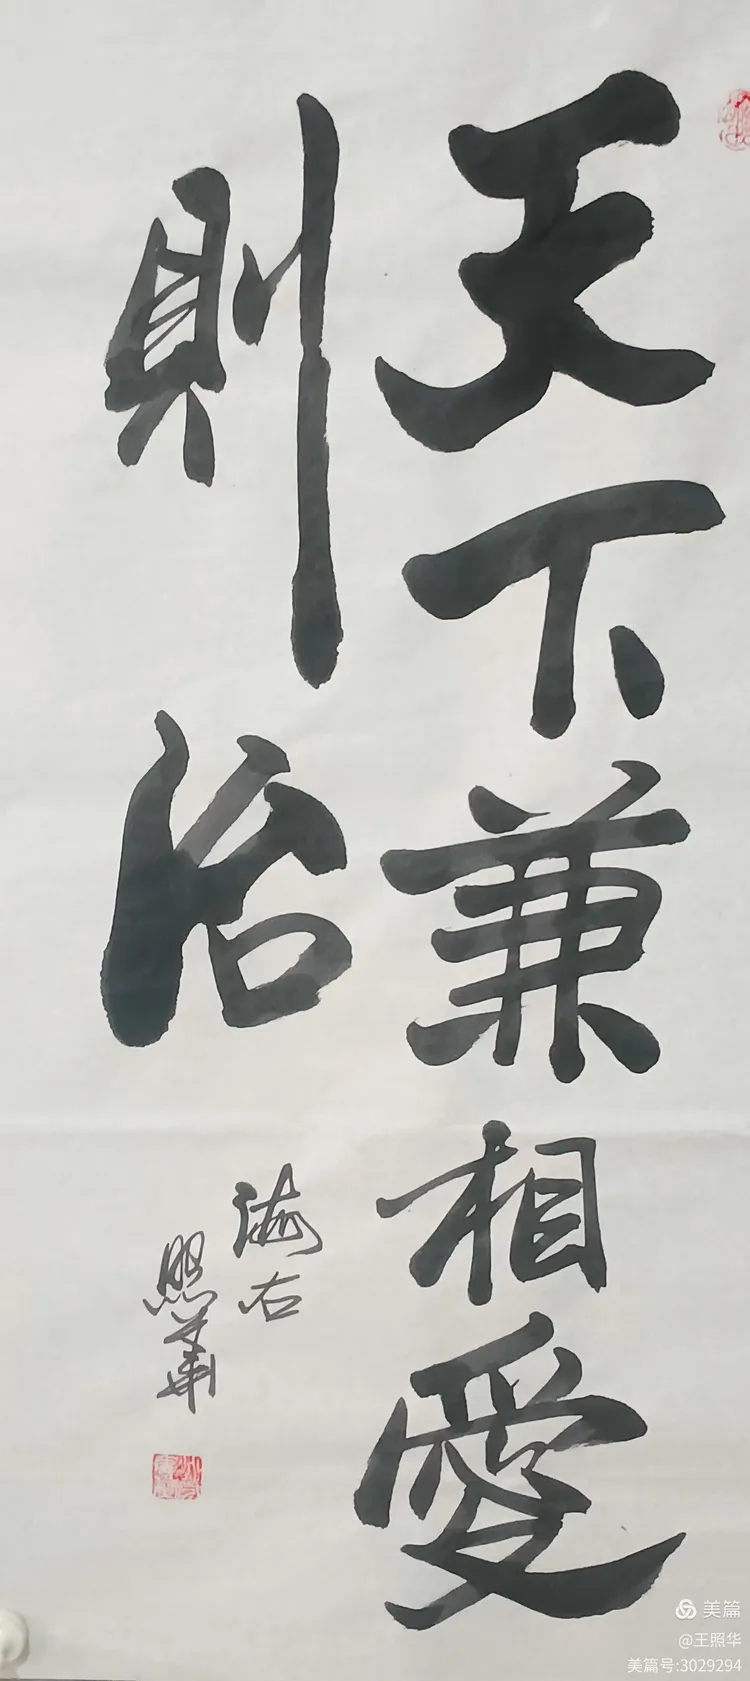 天下兼相愛
則治
海右
照華
美篇
@王照华
美篇号:3029294